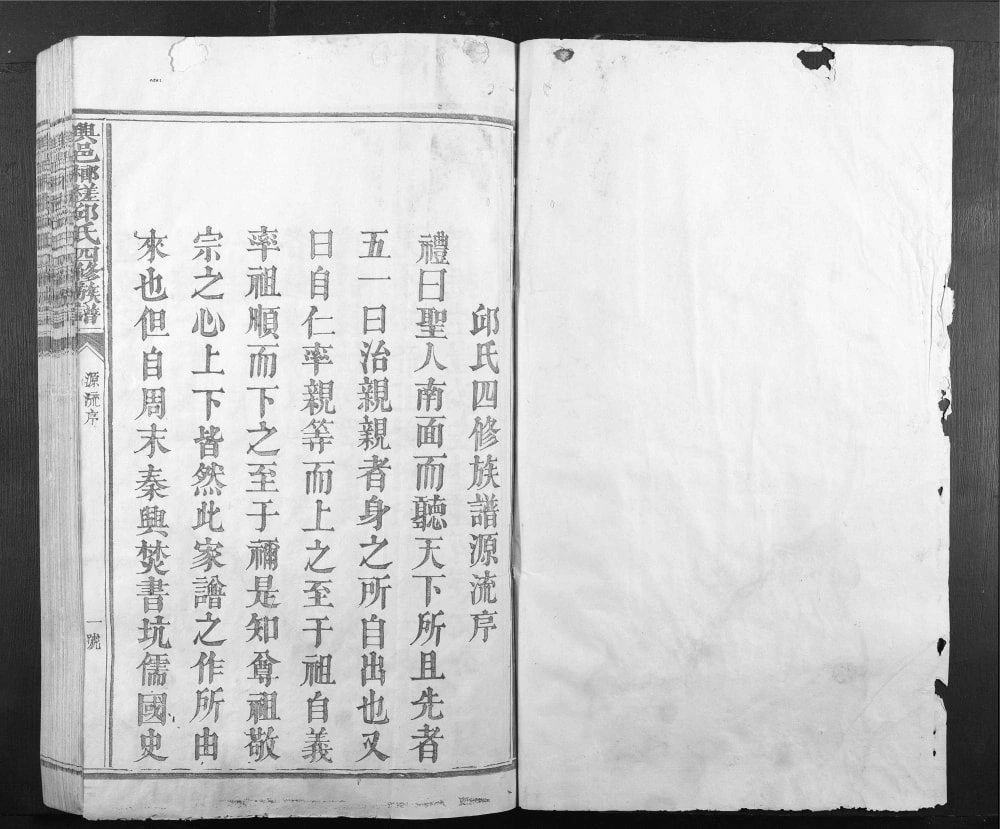 邱氏四修族譜源流序
禮曰聖人南面而聽天下所且先者
五一曰治親親者身之所自出也又
曰自仁率親等而上之至于祖自義
率祖順而下之至于禰是知尊祖敬
宗之心上下皆然此家譜之作所由
來也但自周末秦興焚書坑儒國史
興邑槎邱氏四修族譜
源流序
一號